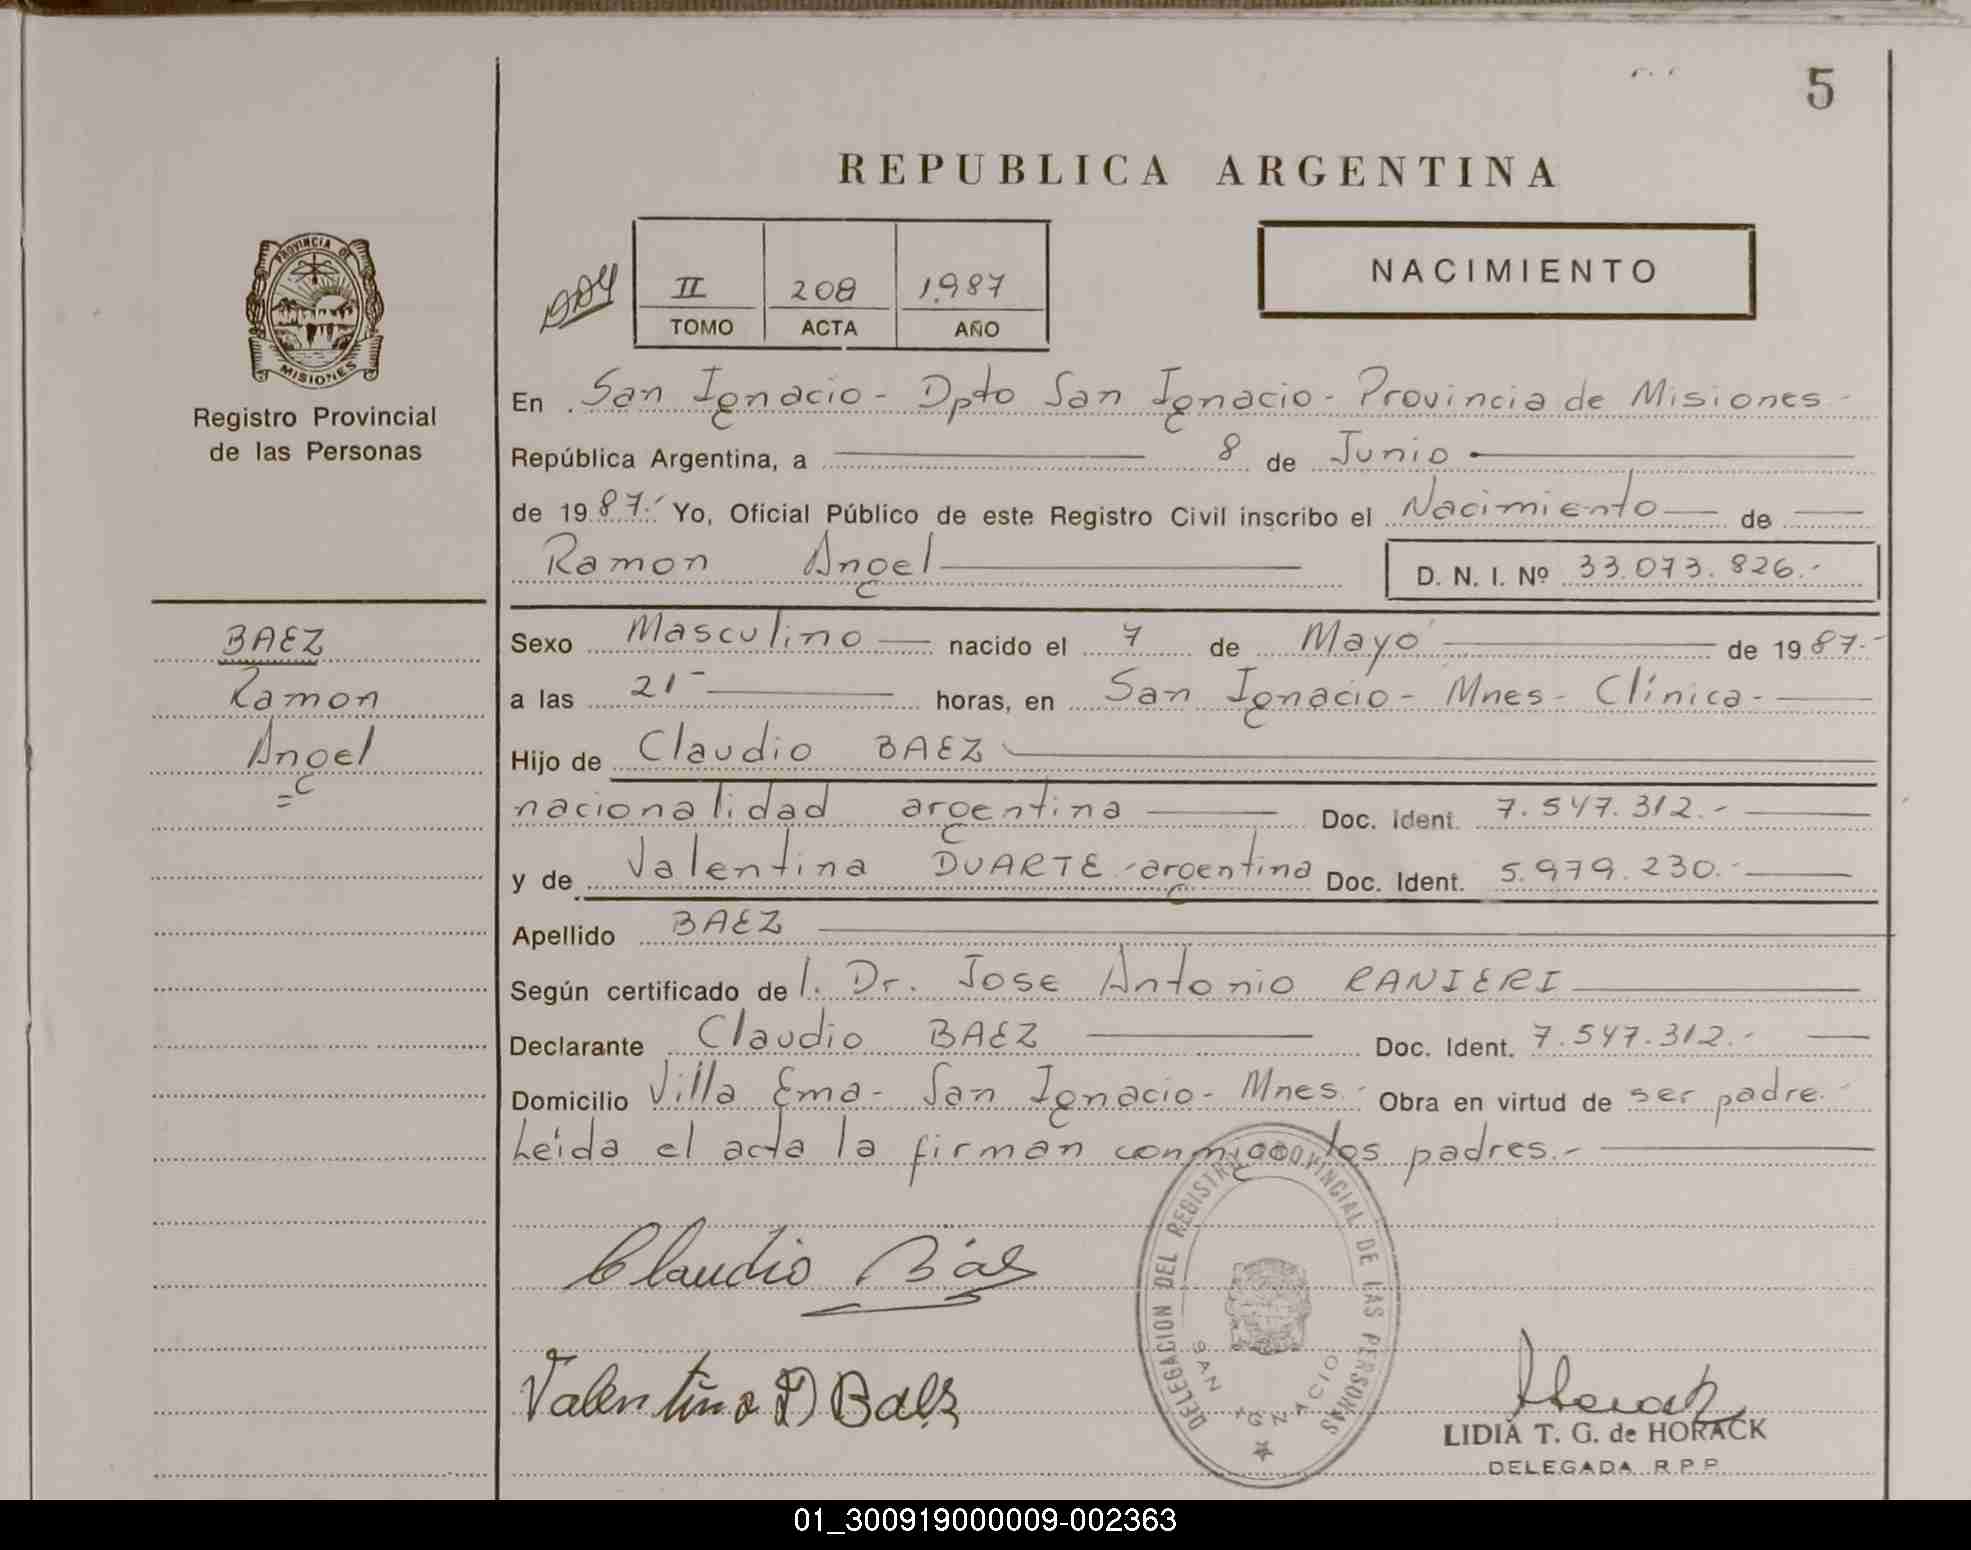 5
REPUBLICA ARGENTINA
PROVINCIA DE
MISIONES
Registro Provincial
de las Personas
II 208 1.987
TOMO ACTA AÑO
NACIMIENTO
En San Ignacio - Dpto San Ignacio - Provincia de Misiones -
República Argentina, a 8 de Junio
de 1987.- Yo, Oficial Público de este Registro Civil inscribo el Nacimiento de
Ramon Angel D. N. I. Nº 33.073.826.-
BAEZ
Ramon
Angel
Sexo Masculino nacido el 7 de Mayo de 1987.-
a las 21 horas, en San Ignacio - Mnes - Clínica -
Hijo de Claudio BAEZ
nacionalidad argentina Doc. Ident. 7.547.312.-
y de Valentina DUARTE - argentina Doc. Ident. 5.979.230.-
Apellido BAEZ
Según certificado del. Dr. Jose Antonio RANIERI
Declarante Claudio BAEZ Doc. Ident. 7.547.312.-
Domicilio Villa Ema - San Ignacio - Mnes.- Obra en virtud de ser padre.-
Leida el acta la firman conmigo los padres.-
DELEGACION DEL REGISTRO PROVINCIAL DE LAS PERSONAS
SAN IGNACIO
Claudio Báez
Valentina D Baez
Horack
LIDIA T. G. de HORACK
DELEGADA R.P.P.
01_300919000009-002363